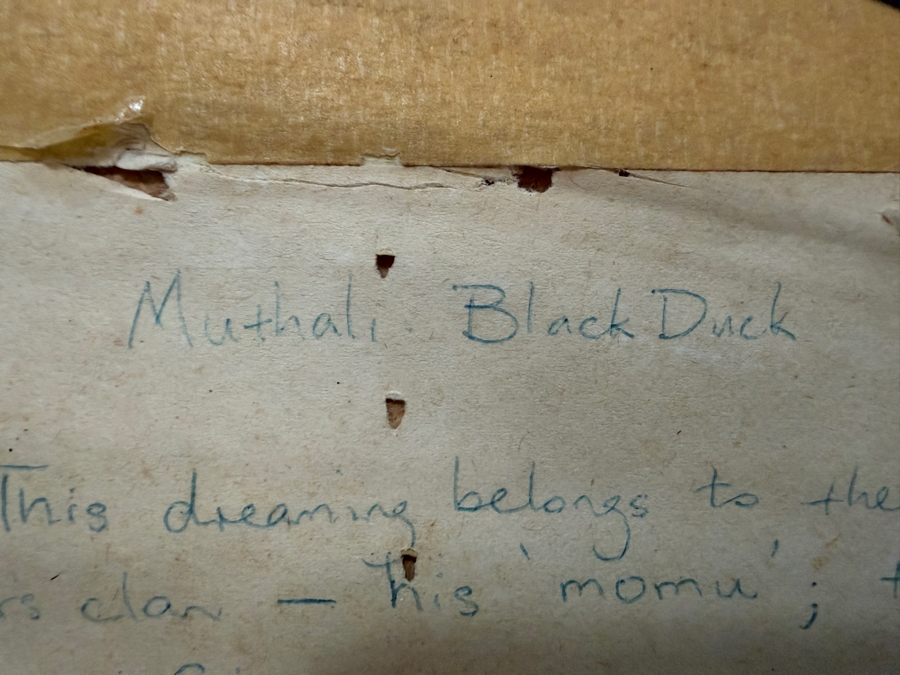 Muthali Black Duck
This dreaming belongs to the
rs clan — his 'momu';